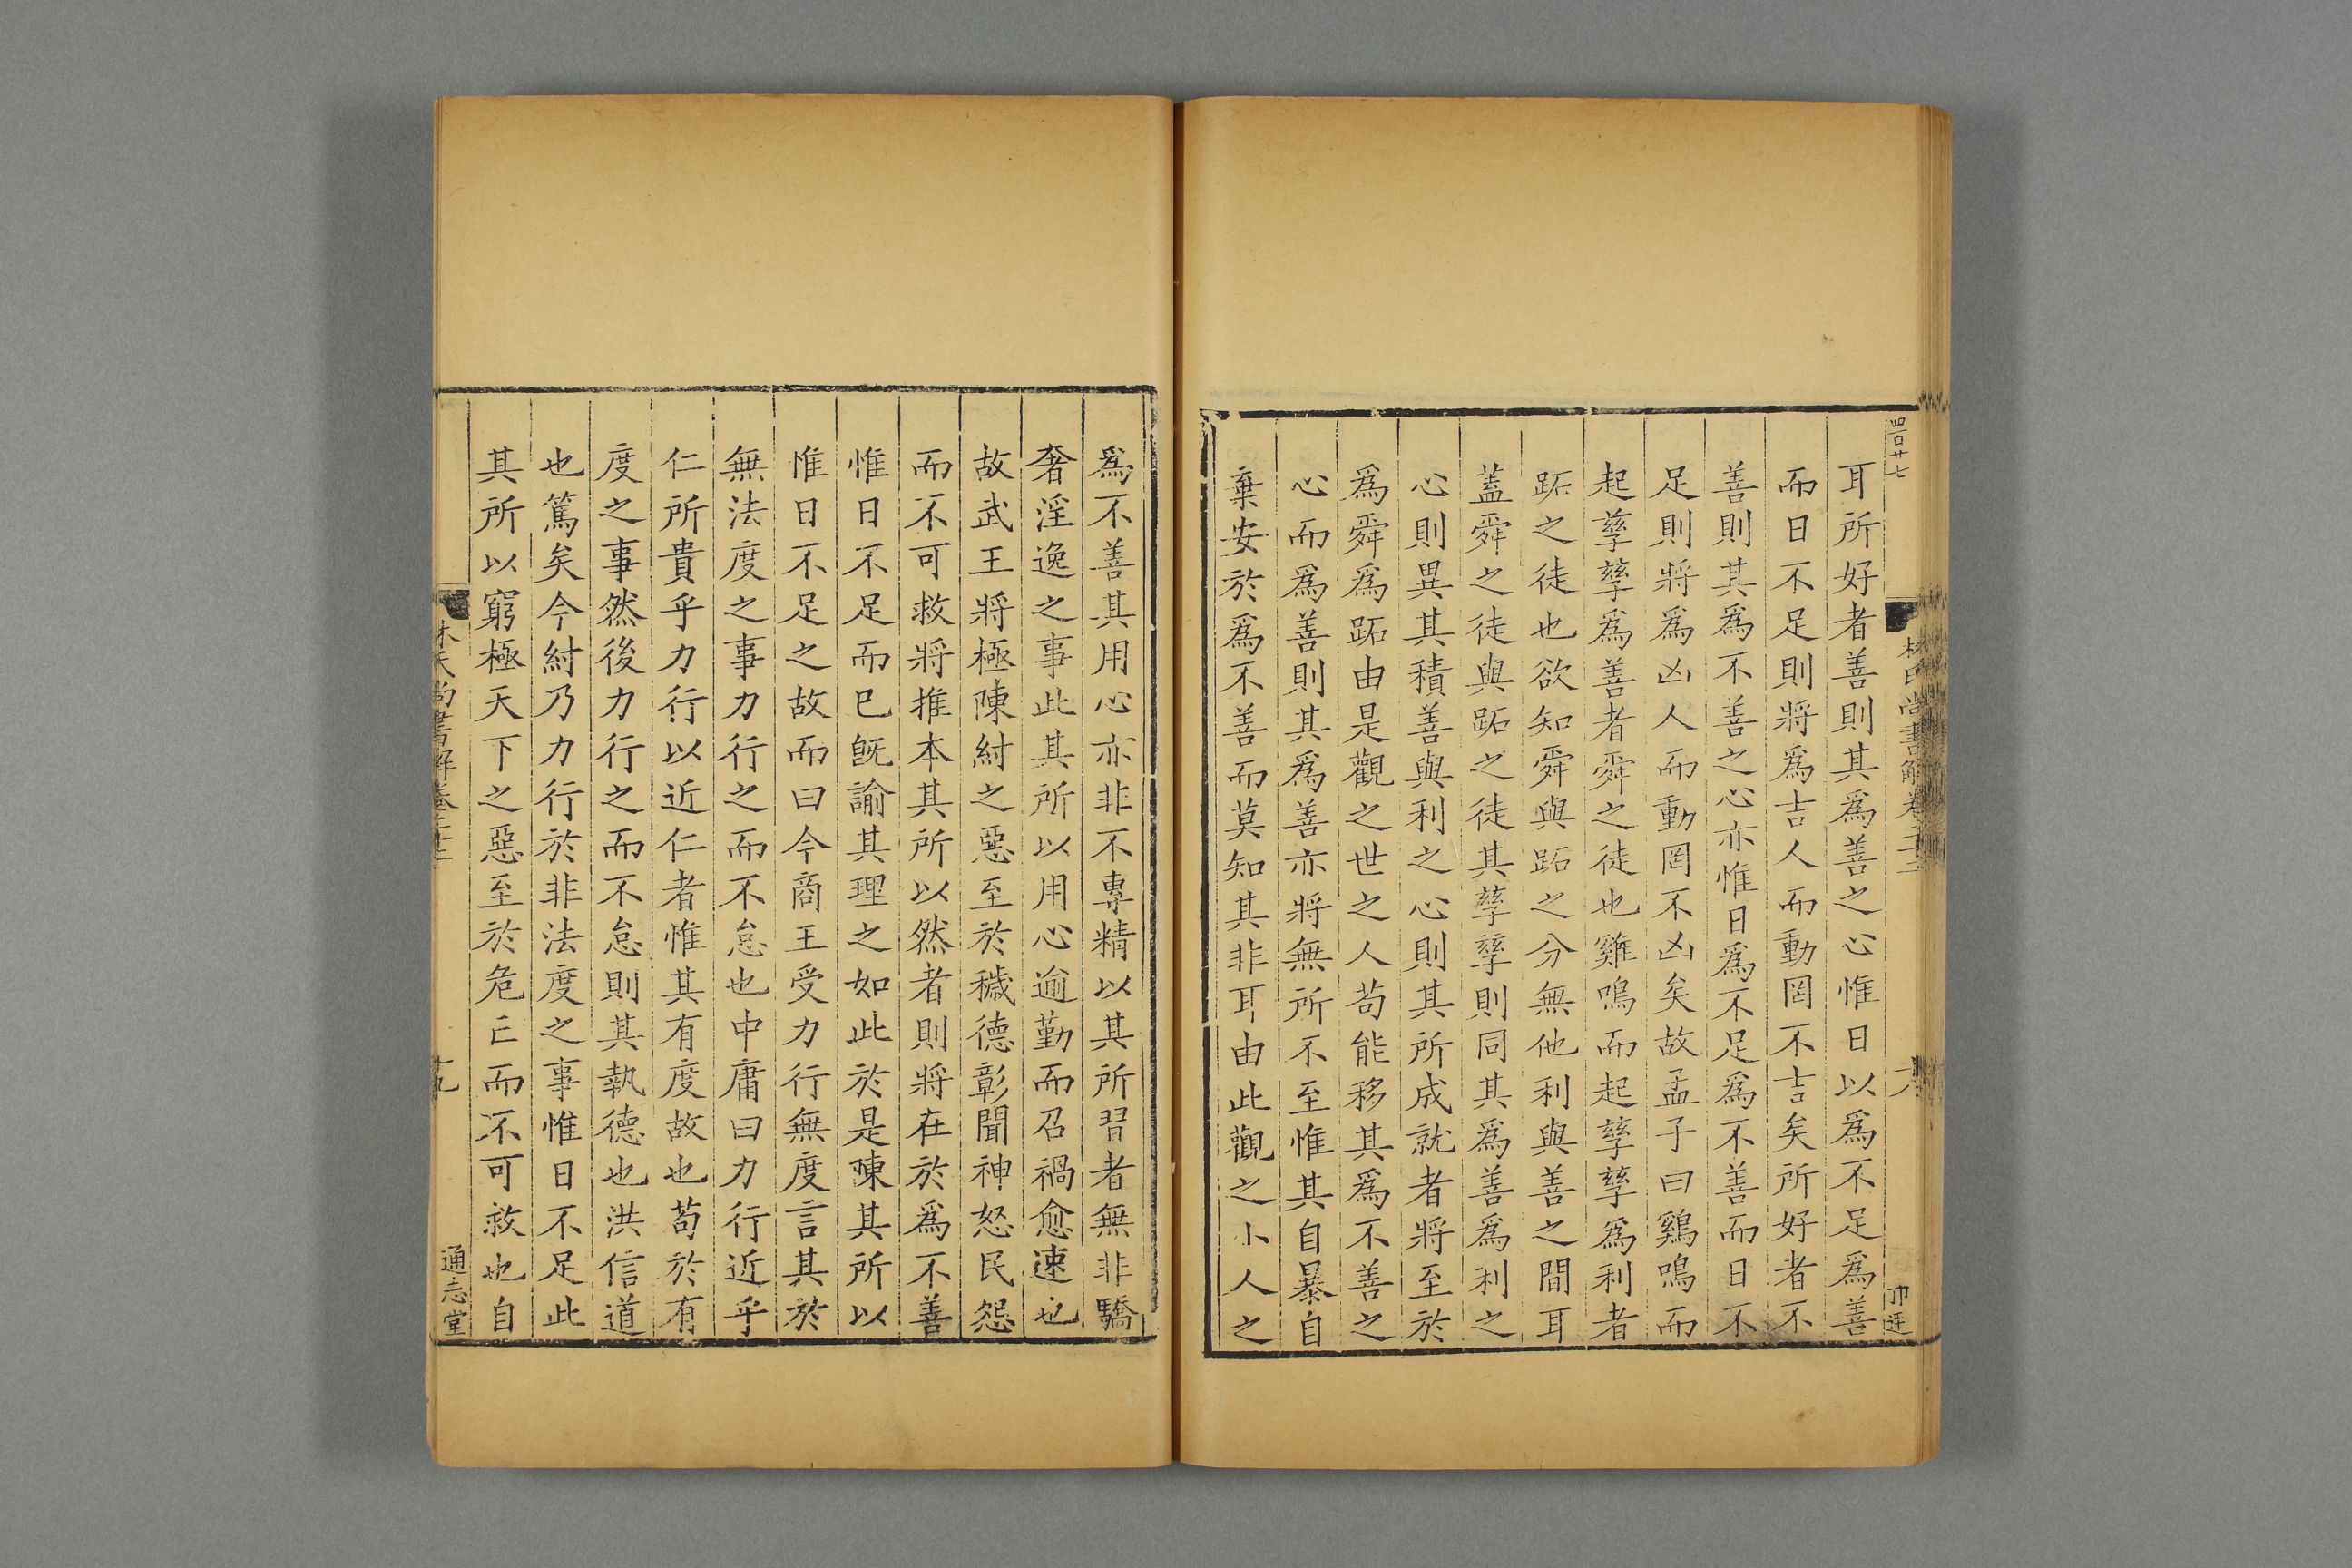 四百廿七
林氏尚書解卷二十二
六
耳所好者善則其爲善之心惟日以爲不足爲善
而日不足則將爲吉人而動罔不吉矣所好者不
善則其爲不善之心亦惟日爲不足爲不善而日不
足則將爲凶人而動罔不凶矣故孟子曰鷄鳴而
起孳孳爲善者舜之徒也雞鳴而起孳孳爲利者
跖之徒也欲知舜與跖之分無他利與善之間耳
蓋舜之徒與跖之徒其孳孳則同其爲善爲利之
心則異其積善與利之心則其所成就者將至於
爲舜爲跖由是觀之世之人苟能移其爲不善之
心而爲善則其爲善亦將無所不至惟其自暴自
棄安於爲不善而莫知其非耳由此觀之小人之
爲不善其用心亦非不專精以其所習者無非驕
奢淫逸之事此其所以用心逾勤而召禍愈速也
故武王將極陳紂之惡至於穢德彰聞神怒民怨
而不可救將推本其所以然者則將在於爲不善
惟日不足而已旣諭其理之如此於是陳其所以
惟日不足之故而曰今商王受力行無度言其於
無法度之事力行之而不怠也中庸曰力行近乎
仁所貴乎力行以近仁者惟其有度故也苟於有
度之事然後力行之而不怠則其執德也洪信道
也篤矣今紂乃力行於非法度之事惟日不足此
其所以窮極天下之惡至於危亡而不可救也自
林氏尚書解卷二十二
十九
通志堂